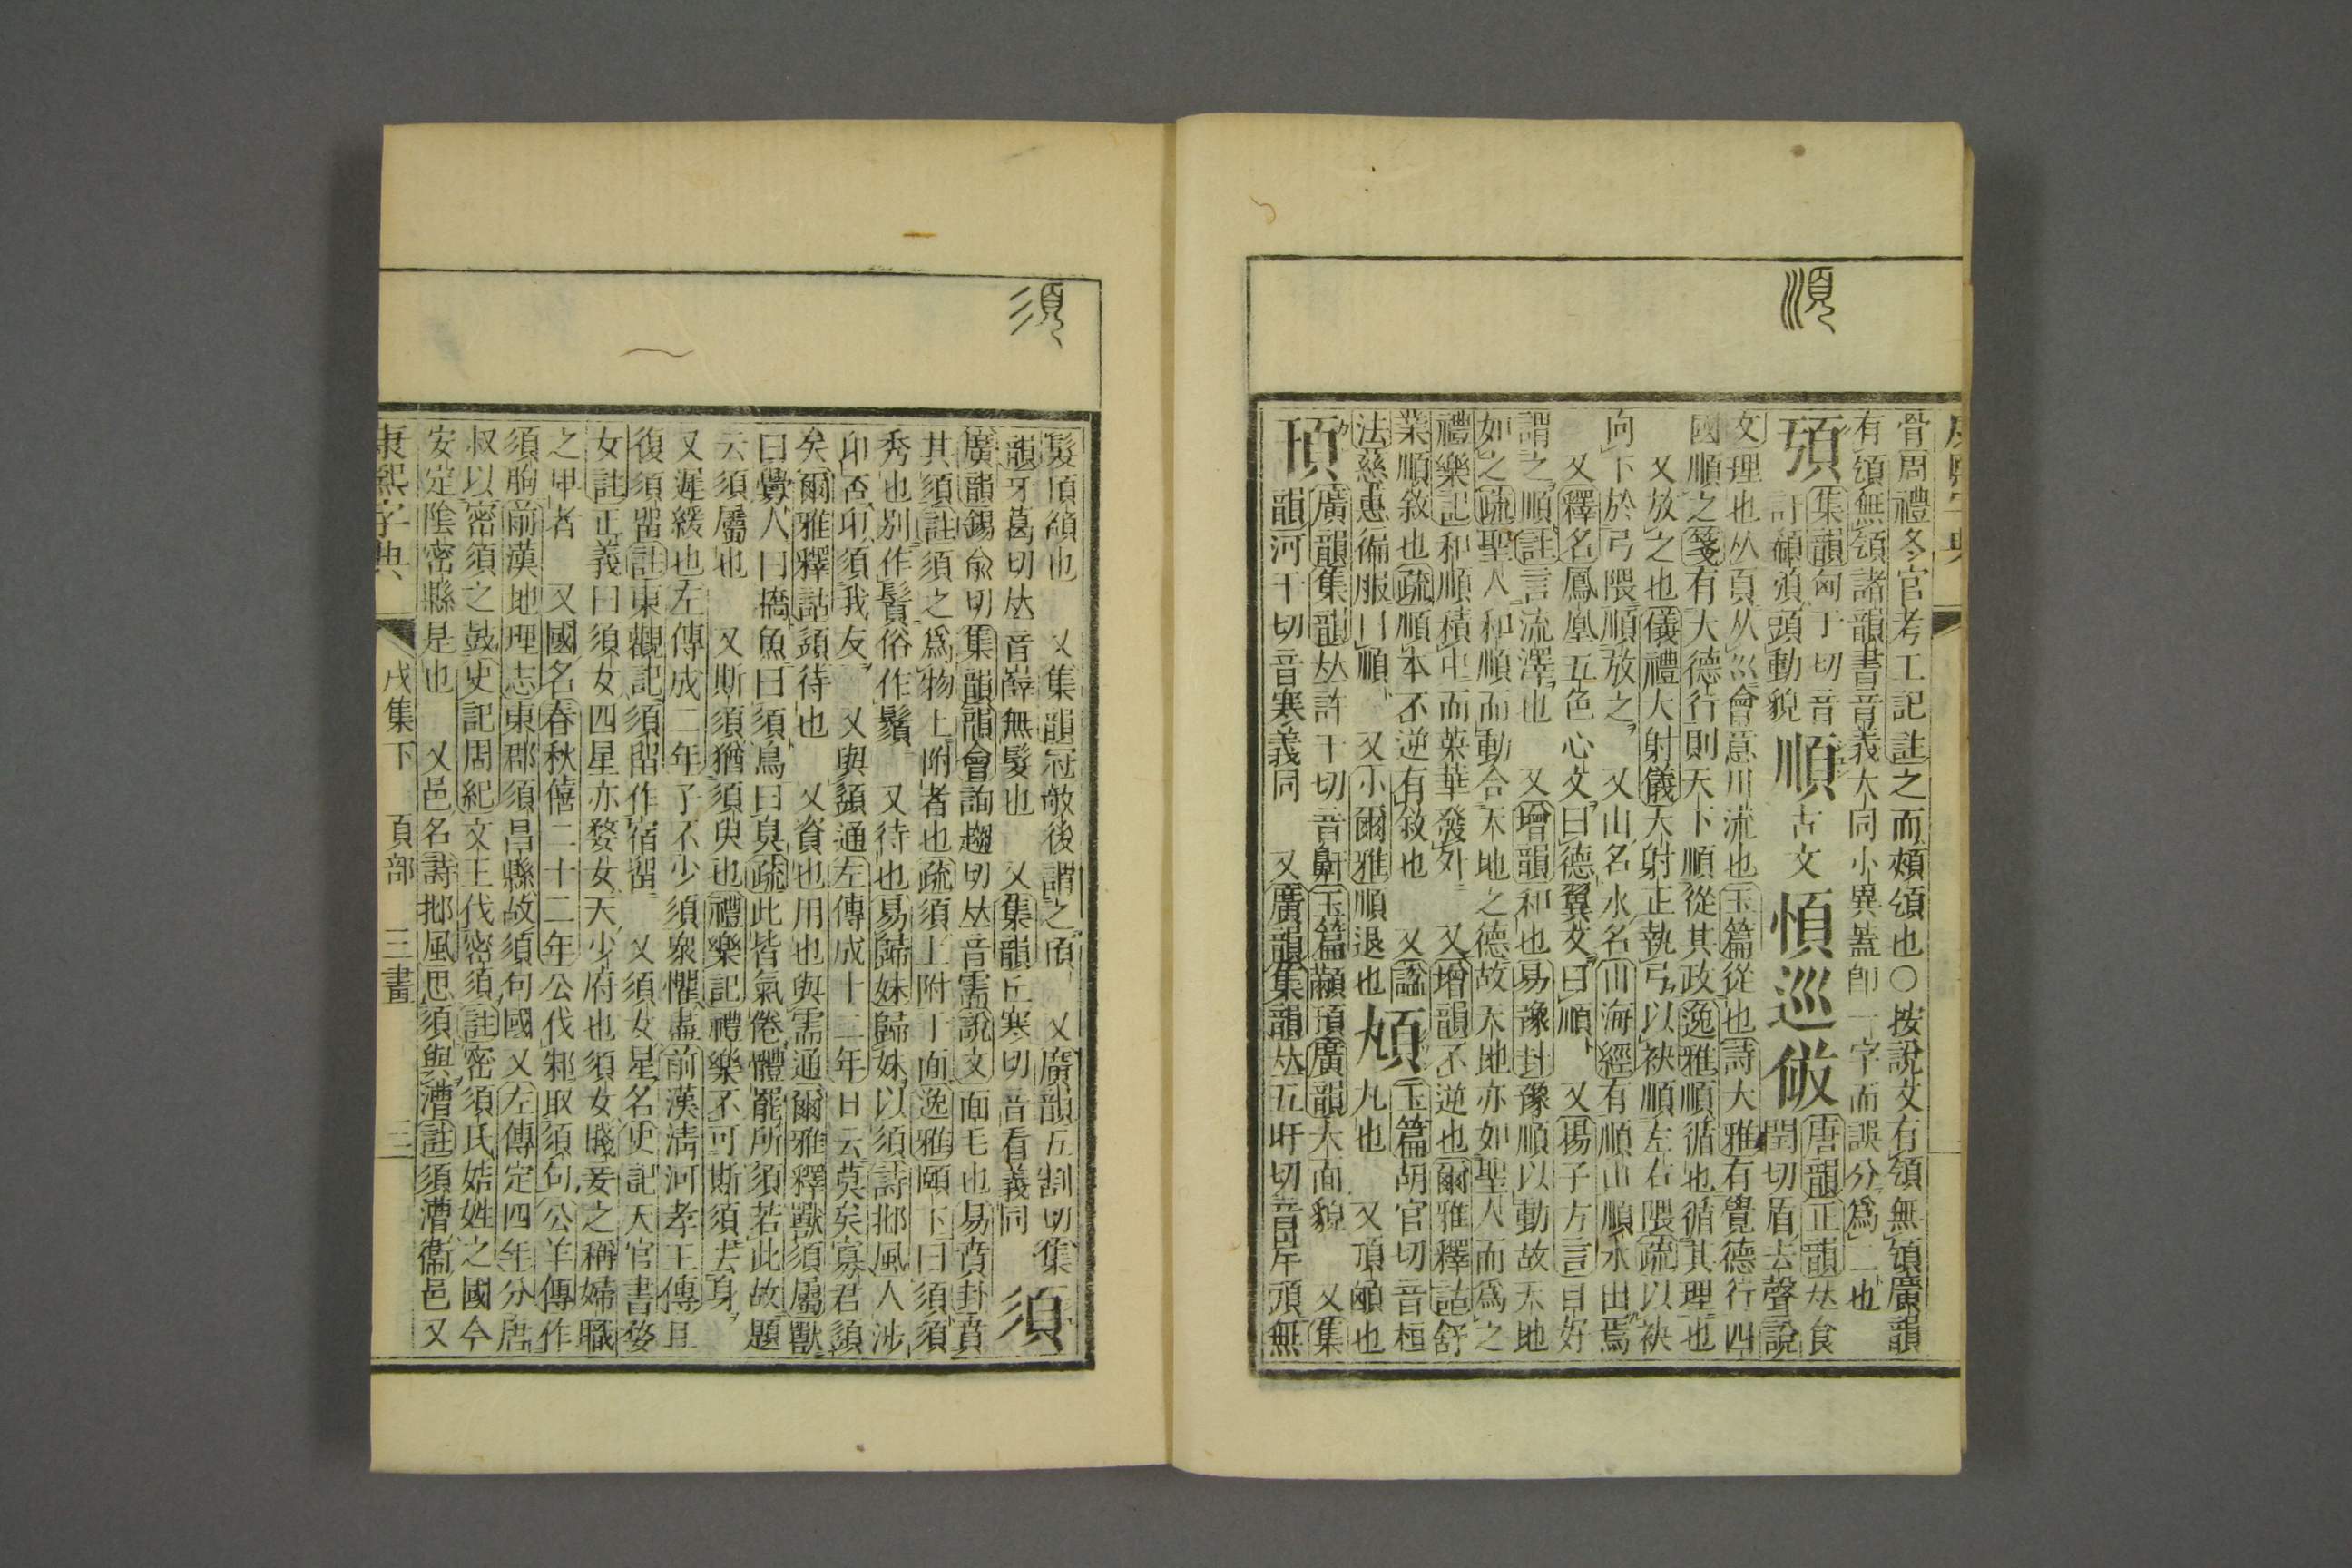 順
骨周禮冬官考工記註之而頰頷也○按說文有頷無頷廣韻
有頷無頷諸韻書音義大同小異蓋卽一字而誤分爲二也
頨 集韻匈于切音訏碩頨頭動貌 順 古文 𢝊 巡 𠈹 唐韻正韻𠀤食閏切盾去聲說
文理也从頁从巛會意川流也玉篇從也詩大雅有覺德行四
國順之箋有大德行則天下順從其政逸雅順循也循其理也
又放之也儀禮大射儀大射正執弓以袂順左右隈疏以袂
向下於弓隈順放之 又山名水名山海經有順山順水出焉
又釋名鳳凰五色心文曰德翼文曰順 又揚子方言自好
謂之順註言流澤也 又增韻和也易豫卦豫順以動故天地
如之疏聖人和順而動合天地之德故天地亦如聖人而爲之
禮樂記和順積中而英華發外 又增韻不逆也爾雅釋詁舒
業順敘也疏順本不逆有敘也 又諡
法慈惠徧服曰順 又小爾雅順退也 䪱 玉篇胡官切音桓丸也 又項䪱也
頇 廣韻集韻𠀤許干切音鼾玉篇顢頇廣韻大面貌 又集
韻河干切音寒義同 又廣韻集韻𠀤五旰切音岸頇無
須
髮頂頟也 又集韻冠欹後謂之頇 又廣韻五割切集
韻牙葛切𠀤音嶭無髮也 又集韻丘寒切音看義同 須
廣韻錫俞切集韻韻會詢趨切𠀤音需說文面毛也易賁卦賁
其須註須之爲物上附者也疏須上附于面逸雅頤下曰須須
秀也別作鬚俗作鬚 又待也易歸妹歸妹以須詩邶風人涉
卬否卬須我友 又與頾通左傳成十二年日云莫矣寡君須
矣爾雅釋詁頾待也 又資也用也與需通爾雅釋獸須屬獸
曰釁人曰撟魚曰須鳥曰狊疏此皆氣倦體罷所須若此故題
云須屬也 又斯須猶須臾也禮樂記禮樂不可斯須去身
又遲緩也左傳成二年子不少須衆懼盡前漢淸河孝王傳且
復須留註東觀記須留作宿留 又須女星名史記天官書婺
女註正義曰須女四星亦婺女天少府也須女賤妾之稱婦職
之卑者 又國名春秋僖二十二年公伐邾取須句公羊傳作
須朐前漢地理志東郡須昌縣故須句國又左傳定四年分唐
叔以密須之鼓史記周紀文王伐密須註密須氏姞姓之國今
安定陰密縣是也 又邑名詩邶風思須與漕註須漕衞邑又
康熙字典 戌集下 頁部 三畫 三